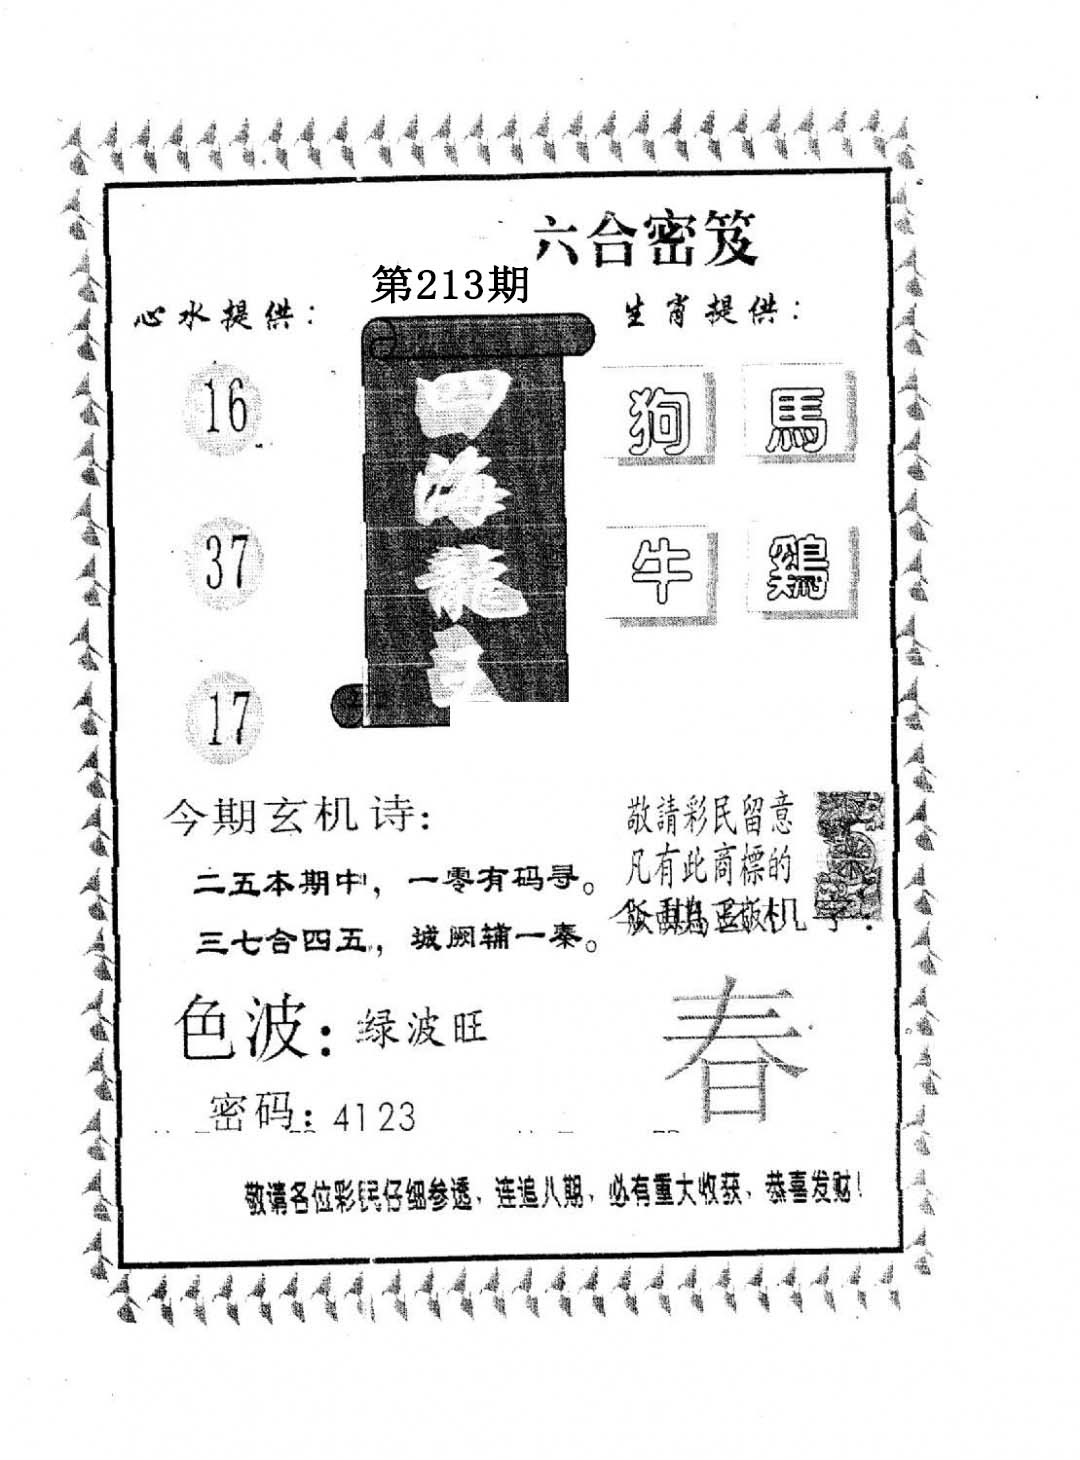 六合密笈
第213期
心水提供：
生肖提供：
16
37
17
四海龍
狗 馬
牛 鷄
今期玄机诗：
二五本期中，一零有码寻。
三七合四五，城阙辅一秦。
敬請彩民留意
凡有此商標的
色波：绿波旺
密码：4123
春
敬请各位彩民仔细参透、连追八期、必有重大收获、恭喜发财！